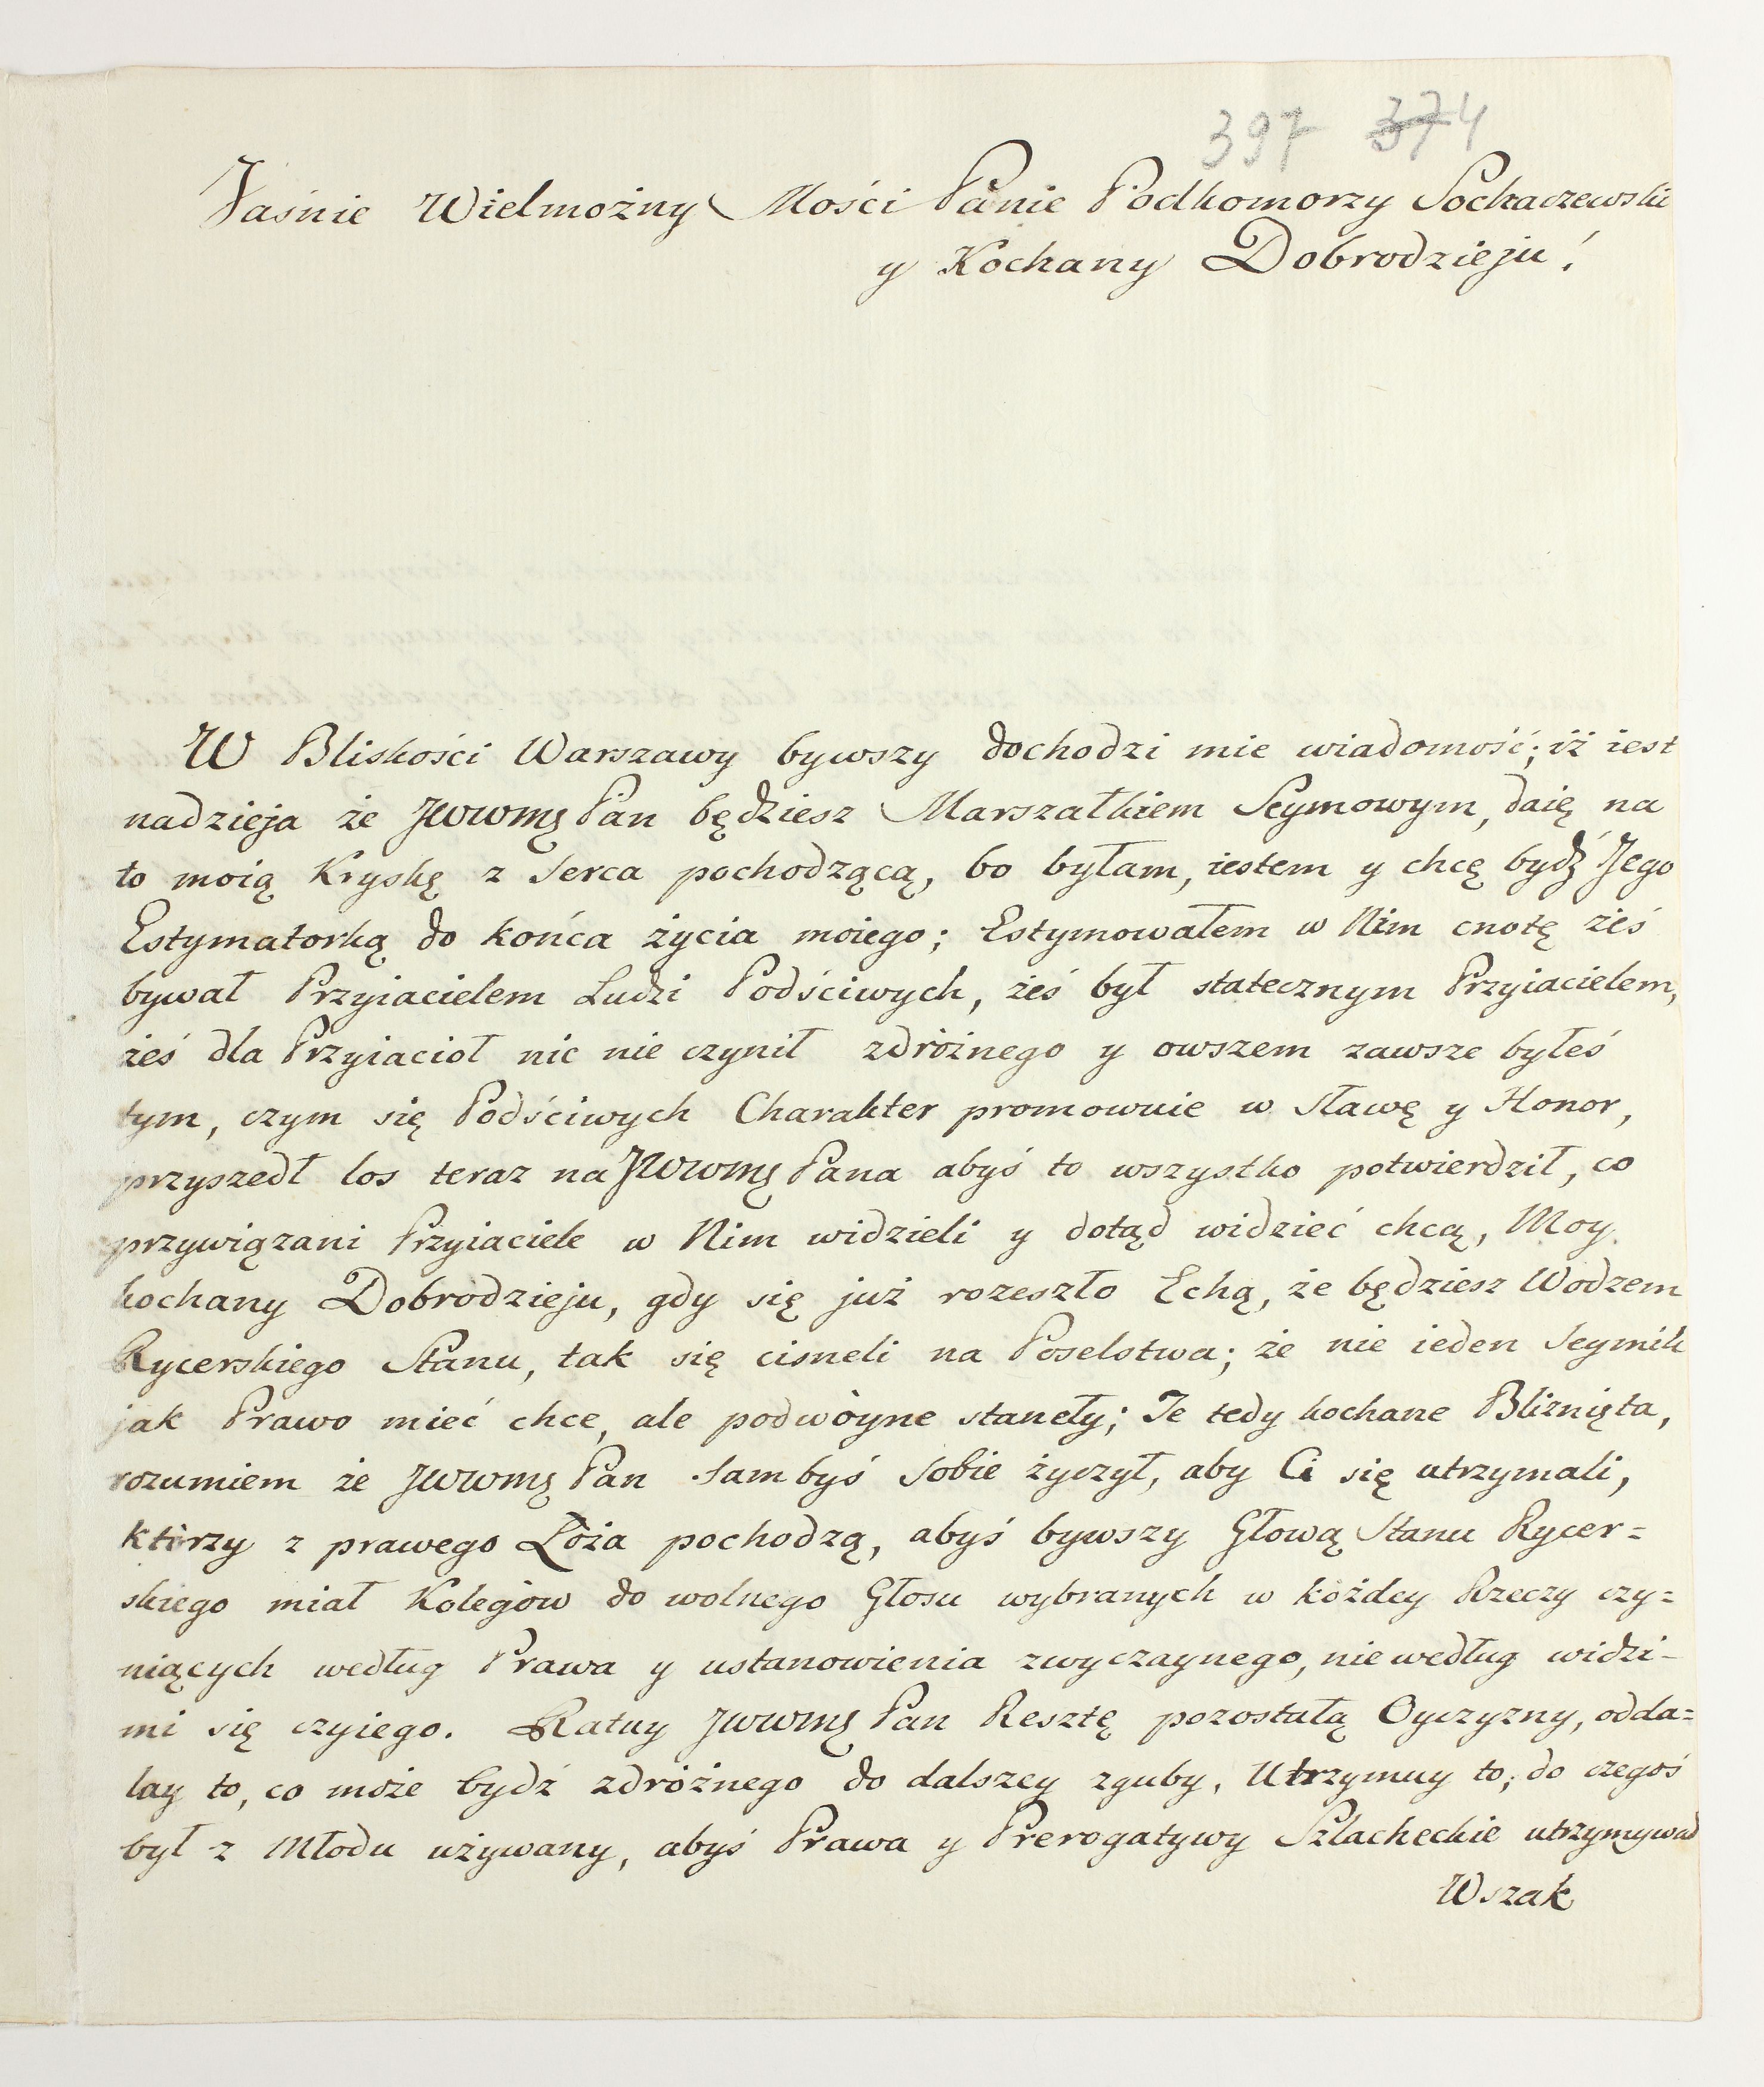 397 374
Jaśnie Wielmożny Mości Panie Podkomorzy Sochaczewski
y Kochany Dobrodzieju!
W Bliskości Warszawy bywszy dochodzi mie wiadomość; iż iest
nadzieja że JWWMę Pan będziesz Marszałkiem Seymowym, daię na
to moią Kryskę z Serca pochodzącą, bo byłam, iestem y chcę bydź Jego
Estymatorką do końca życia moiego; Estymowałem w Nim cnotę żeś
bywał Przyiacielem Ludzi Podściwych, żeś był statecznym Przyiacielem,
żeś dla Przyiacioł nic nie czynił zdróżnego y owszem zawsze byłeś
tym, czym się Podściwych Charakter promowuie w Sławę y Honor,
przyszedł los teraz na JWWMę Pana abyś to wszystko potwierdził, co
przywiązani Przyiaciele w Nim widzieli y dotąd widzieć chcą, Moy
kochany Dobrodzieju, gdy się już rozeszło Echą, że będziesz Wodzem
Rycerskiego Stanu, tak się cisneli na Poselstwa; że nie ieden Seymik
jak Prawo mieć chce, ale podwòyne staneły; Te tedy kochane Bliznięta,
rozumiem że JWWMę Pan sam byś sobie życzył, aby Ci się utrzymali,
którzy z prawego Łoża pochodzą, abyś bywszy Głową Stanu Rycer=
skiego miał Kolegów do wolnego Głosu wybranych w każdey Rzeczy czy=
niących według Prawa y ustanowienia zwyczaynego, nie według widzi-
mi się czyiego. Ratuy JWWMę Pan Resztę pozostałą Oyczyzny, odda=
lay to, co może bydź zdróżnego do dalszey zguby, Utrzymuy to; do czegoś
był z Młodu używany, abyś Prawa y Prerogatywy Szlacheckie utrzymywał
Wszak